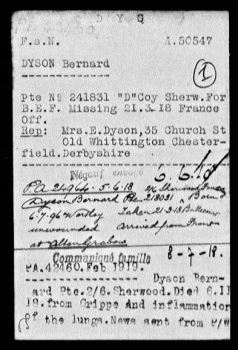 D Y S
F.s.N. A.50547
DYSON Bernard
1
Pte Nº 241831 "D"Coy Sherw.For
B.E.F. Missing 21.3.18 France
Off.
Rep: Mrs.E.Dyson,35 Church St
Old Whittington Chester-
field.Derbyshire
Négatif envoyé 6.6.18
PA 5.6.18 Sherwood
Dyson Bernard Pte
6.7.96 Taken 21.3.18
unwounded arrived from
at
Communiqué famille 8-7-18.
PA.42460.Feb 1919.
Dyson Bern-
ard Pte.2/6.Sherwood.Died 6.II
18.from Grippe And inflammation
of the lungs.News sent from P/W